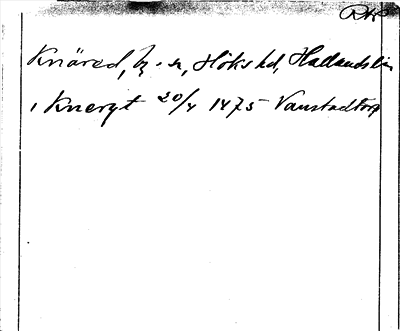 Knäred, by. sn, Höks hd, Hallands län
i Knergt 20/4 1475 Vanstadtorp